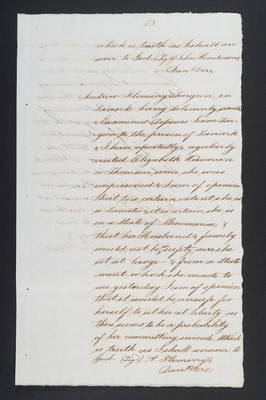 13
which is truth as I shall an
swer to God (Sgd) John
Danl Vere
Andrew Fleming Surgeon in
Lanark being Solemnly sworn
& Examined Depones I am Sur
geon to the prison of Lanark
& I have repeatedly & regularly
visited Elizabeth
or Thomson since she was
imprisoned & I am of opinion
that to a certain extent she is
a Lunatic & at certain she is
in a State of Monomania, &
that her Husband & family
would not be safe were she
set at large - & from a State
ment which she made to
me yesterday I am of opinion
that it would be unsafe for
herself to set her at liberty as
there seems to be a probability
of her committing suicide Which
is truth as I shall answer to
God (Sgd) A Fleming
Danl Vere